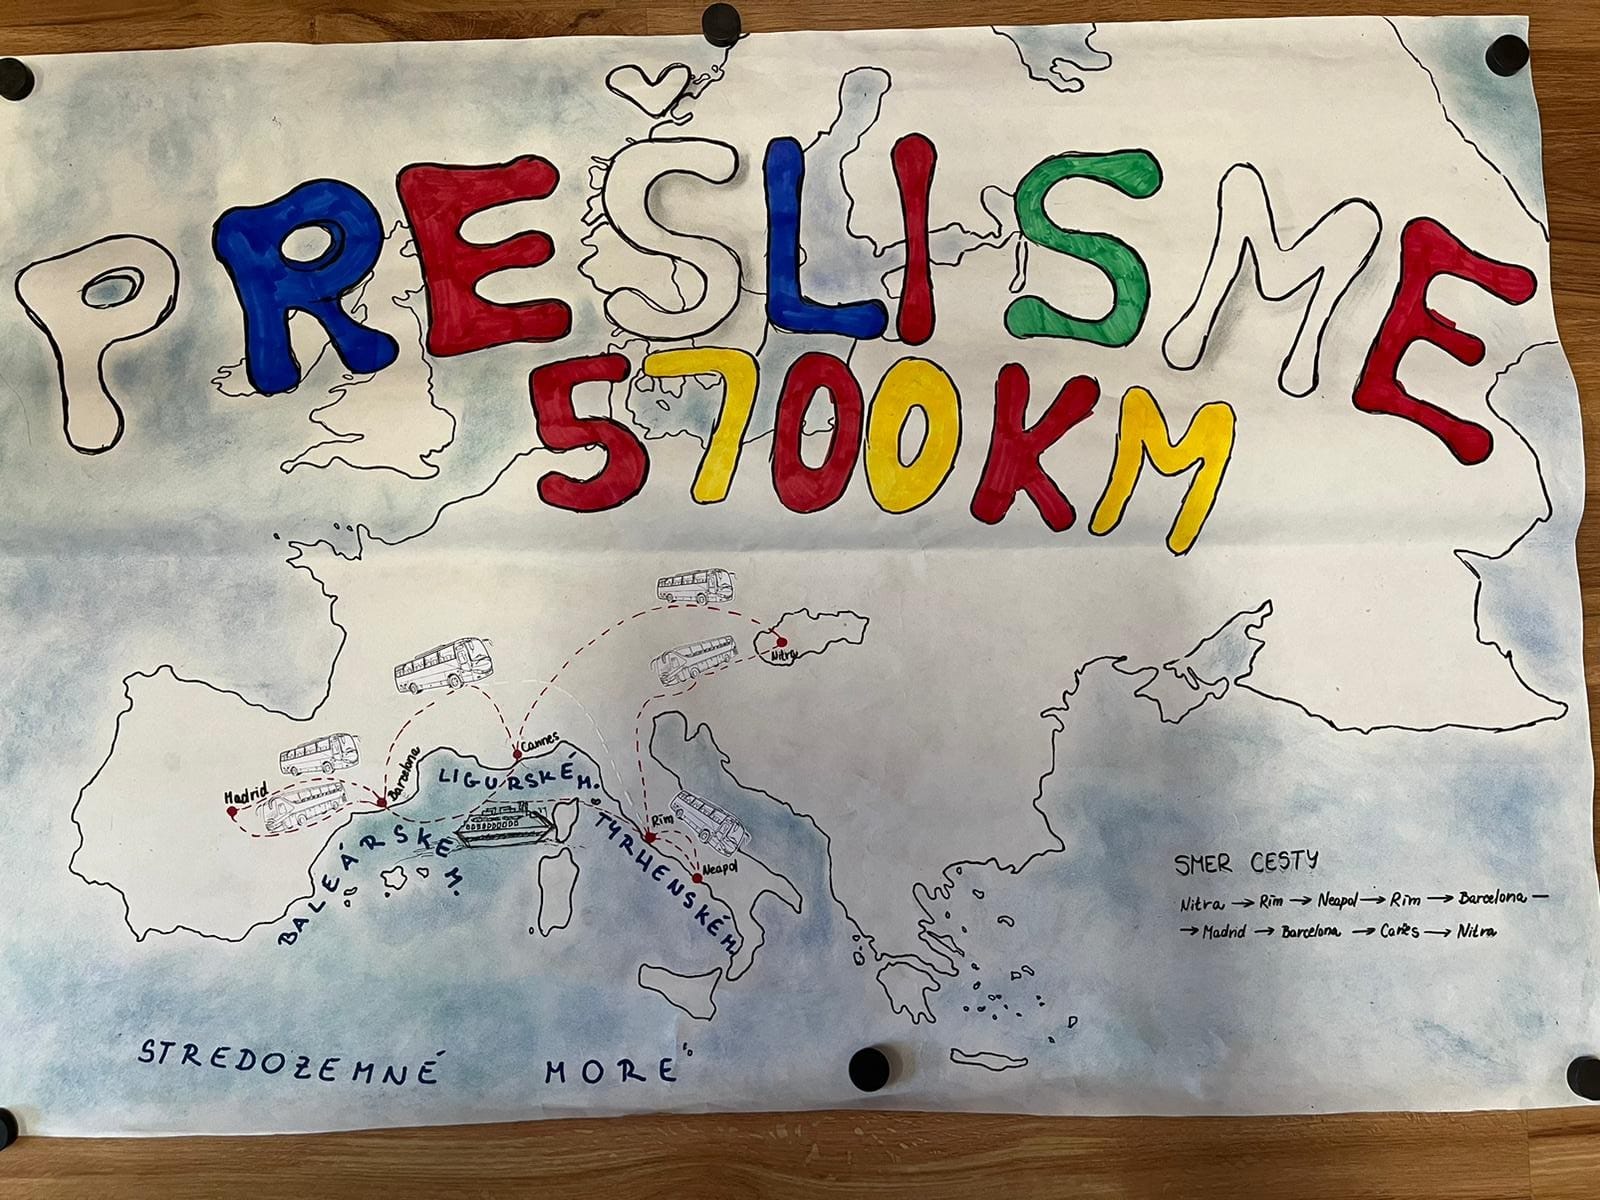 PREŠLI SME
5700KM
Nitra
Cannes
Barcelona
Madrid
LIGURSKÉ M.
BALEÁRSKE M.
Rím
TYRHENSKÉ M.
Neapol
SMER CESTY
Nitra → Rím → Neapol → Rím → Barcelona —
→ Madrid → Barcelona → Canes → Nitra
STREDOZEMNÉ MORE